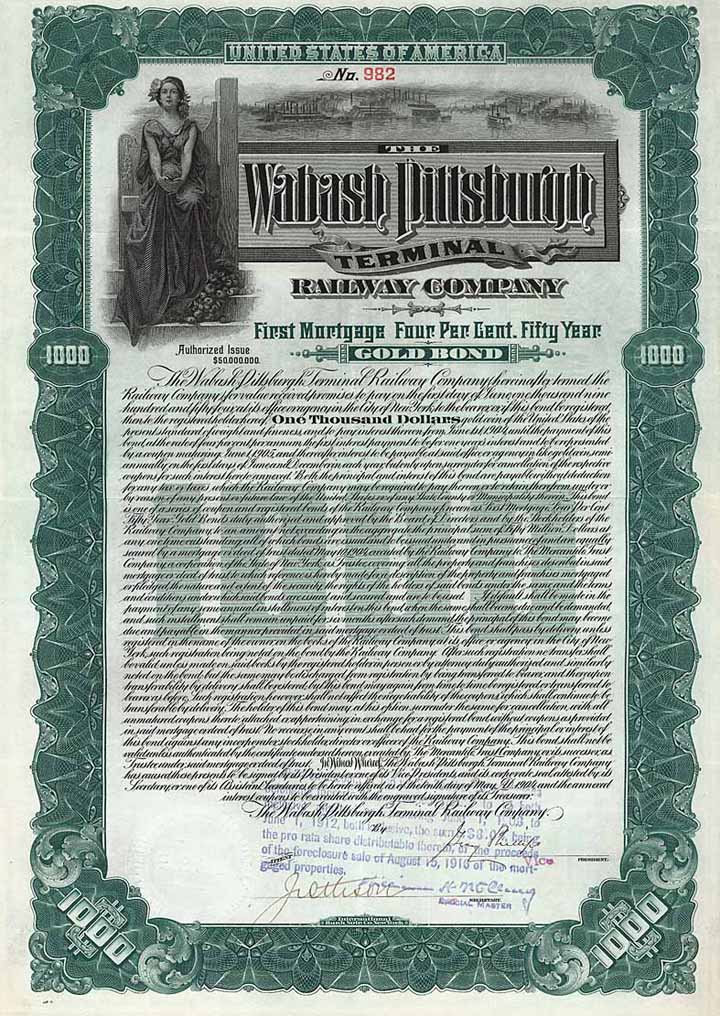 UNITED STATES OF AMERICA
No. 982
THE
Wabash Pittsburgh
TERMINAL
RAILWAY COMPANY
First Mortgage Four Per Cent. Fifty Year
GOLD BOND
Authorized Issue
$50,000,000.
1000
1000
The Wabash Pittsburgh Terminal Railway Company (hereinafter termed the
Railway Company) for value received promises to pay on the first day of June, one thousand nine
hundred and fifty four, at its office or agency in the City of New York, to the bearer, or if this bond be registered,
then to the registered holder hereof, One Thousand Dollars, gold coin of the United States of the
present standard of weight and fineness, and to pay interest thereon from June 1, 1904, until the payment of this
bond, at the rate of four per cent per annum, the first interest payment to be for one year's interest and to be represented
by a coupon maturing June 1, 1905, and thereafter interest to be payable at said office or agency in like gold coin semi
annually on the first days of June and December in each year, but only upon surrender for cancellation of the respective
coupons for such interest hereto annexed. Both the principal and interest of this bond are payable without deduction
for any tax or taxes which the Railway Company may be required to pay thereon or to retain therefrom under or
by reason of any present or future law of the United States or of any State, County or Municipality therein. This bond
is one of a series of coupon and registered bonds of the Railway Company known as First Mortgage Four Per Cent
Fifty Year Gold Bonds duly authorized and approved by the Board of Directors and by the Stockholders of the
Railway Company, to an amount not exceeding in the aggregate the principal sum of Fifty Million Dollars at
any one time outstanding, all of which bonds are issued and to be issued under and in pursuance of and are equally
secured by a mortgage or deed of trust dated May 10, 1904, executed by the Railway Company to The Mercantile Trust
Company, a corporation of the State of New York, as trustee, covering all the property and franchises described in said
mortgage or deed of trust, to which reference is hereby made for a description of the property and franchises mortgaged
or pledged, the nature and extent of the security, the rights of the holders of bonds under the same, and the terms
and conditions under which said bonds are issued and secured and are to be issued. If default shall be made in the
payment of any semi annual installment of interest on this bond when the same shall become due and be demanded,
and such installment shall remain unpaid for six months after such demand, the principal of this bond may become
due and payable in the manner provided in said mortgage or deed of trust. This bond shall pass by delivery, unless
registered in the name of the owner on the books of the Railway Company at its office or agency in the City of New
York, such registration being noted on the bond by the Railway Company. After such registration no transfer shall
be valid unless made on said books by the registered holder in person or by attorney duly authorized and similarly
noted on the bond, but the same may be discharged from registration by being transferred to bearer, and thereupon
transferability by delivery shall be restored; but this bond may again from time to time be registered or transferred to
bearer as before. Such registration, however, shall not affect the negotiability of the coupons, which shall continue to be
transferable by delivery. The holder of this bond may, at his option, surrender the same for cancellation, with all
unmatured coupons thereto attached or appertaining, in exchange for a registered bond without coupons, as provided
in said mortgage or deed of trust. No recourse in any event shall be had for the payment of the principal or interest of
this bond against any incorporator, stockholder, director or officer of the Railway Company. This bond shall not be
valid unless authenticated by the certificate endorsed hereon, executed by The Mercantile Trust Company, or its successor, as
Trustee under said mortgage or deed of trust. In Witness Whereof, the Wabash Pittsburgh Terminal Railway Company
has caused these presents to be signed by its President or one of its Vice Presidents, and its corporate seal attested by its
Secretary or one of its Assistant Secretaries to be hereto affixed as of the tenth day of May, 1904, and the annexed
interest coupons to be executed with the engraved signature of its Treasurer.
The Wabash Pittsburgh Terminal Railway Company,
By
June 1, 1912, both inclusive, the sum
being
the pro rata share distributable thereon, of the proceeds
of the foreclosure sale of August 15, 1916 of the mort-
gaged properties.
Vice
PRESIDENT.
ATTEST
SECRETARY
SPECIAL MASTER
International
Bank Note Co. New York
1000
1000